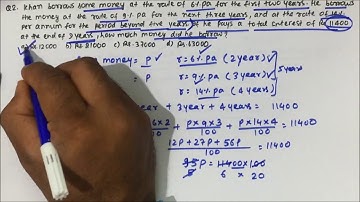 Q2. Khan borrows some money at the rate of 6% pa for the first two years. He borrows
the money at the rate of 9% pa for the next three years, and at the rate of 14%
per annum for the period beyond five years. He pays a total interest of Rs 11400
at the end of 9 years, how much money did he borrow?
12000 b) Rs 21000 c) Rs. 37000 d) Rs 63000
money = P r = 6% pa (2 year)
= P r = 9% pa (3 year) 5 year
r = 14% pa (4 year)
year + 3 year + 4 year = 11400
×6×2 + P×9×3 + P×14×4 = 11400
100 100 100
12P + 27P + 56P = 11400
100
95P = 11400×100
5 6 × 20